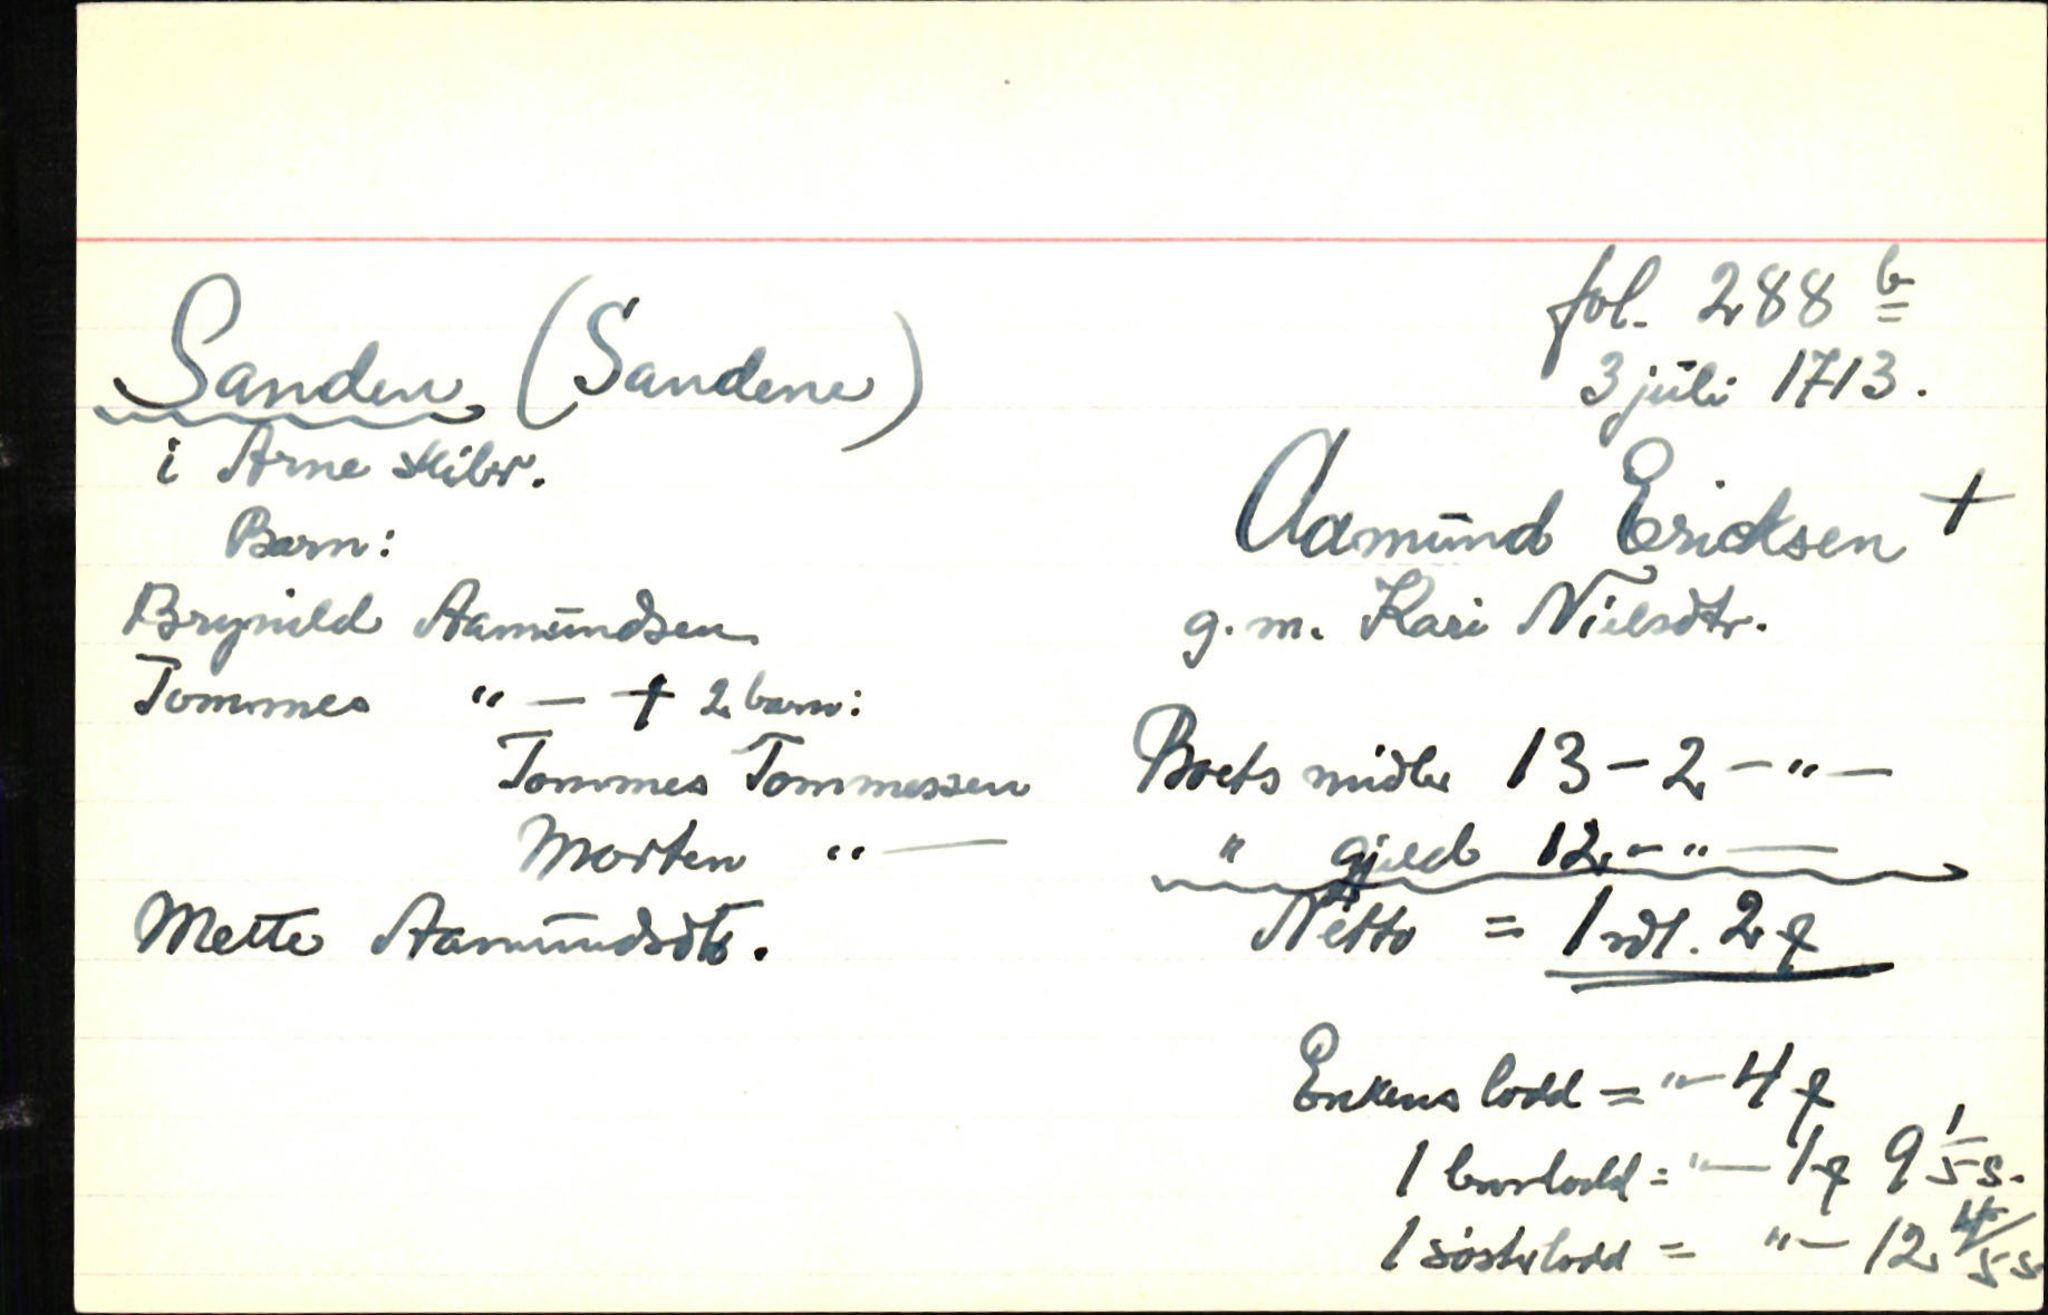 fol. 288 b
3 juli 1713.
Sanden (Sandene)
i Arne skibr.
Barn:
Brynild Aamundsen
Tommes " — † 2 barn:
Tommes Tommessen
Morten " —
Mette Aamundsdtr.
Aamund Ericksen †
g. m. Kari Nielsdtr.
Boets midler 13 - 2 - " -
" gjeld 12 - " —
Netto = 1 rdl. 2 ƒ
Enkens lodd = " - 4 ƒ
1 brorlodd = " — 1 ƒ 9 1/5 s.
1 søsterlodd = " - 12 4/5 s